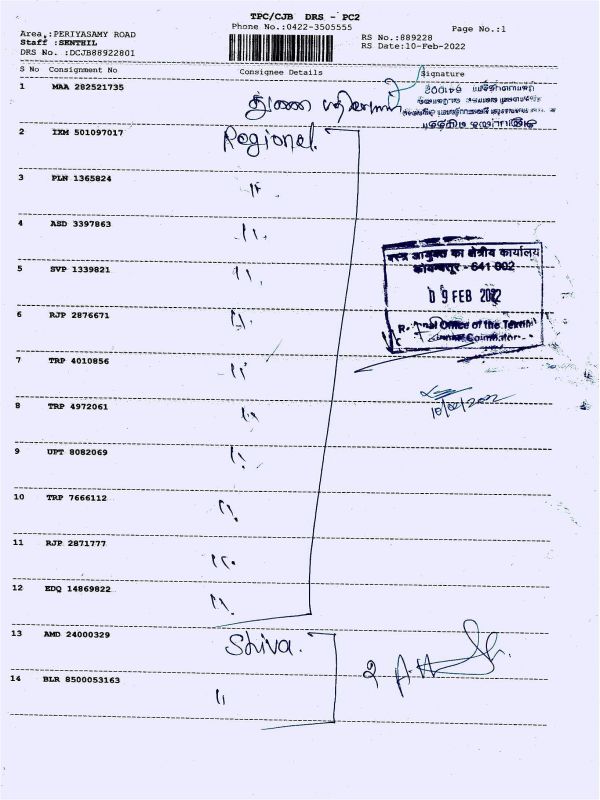 TPC/CJB DRS - PC2
Phone No.:0422-3505555
Page No.:1
Area :PERIYASAMY ROAD
Staff :SENTHIL
DRS No. :DCJB88922801
RS No.:889228
RS Date:10-Feb-2022
S No Consignment No Consignee Details Signature
1 MAA 282521735
641002
2 IXM 501097017 Regional.
3 PLN 1365824 "
4 ASD 3397863 "
5 SVP 1339821 "
6 RJP 2876671 "
7 TRP 4010856 "
8 TRP 4972061 "
9 UPT 8082069 "
10 TRP 7666112 "
11 RJP 2871777 "
12 EDQ 14869822 "
13 AMD 24000329 Shiva.
14 BLR 8500053163 "
वस्त्र आयुक्त का क्षेत्रीय कार्यालय
कोयम्बत्तूर - 641 002
09 FEB 2022
Office of the
Coimbatore
10/02/2022